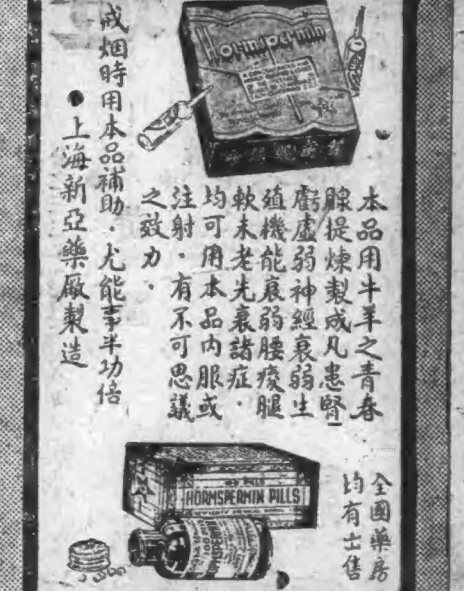 Hormspermin
本品用牛羊之青春
腺提煉製成凡患腎
虧虛弱神經衰弱生
殖機能衰弱腰痠腿
軟未老先衰諸症．
均可用本品內服或
注射．有不可思議
之效力．
戒烟時用本品補助．尤能事半功倍
●上海新亞藥廠製造
HORMSPERMIN PILLS
全國藥房
均有出售